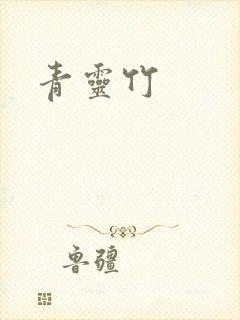 青靈竹
鲁疆